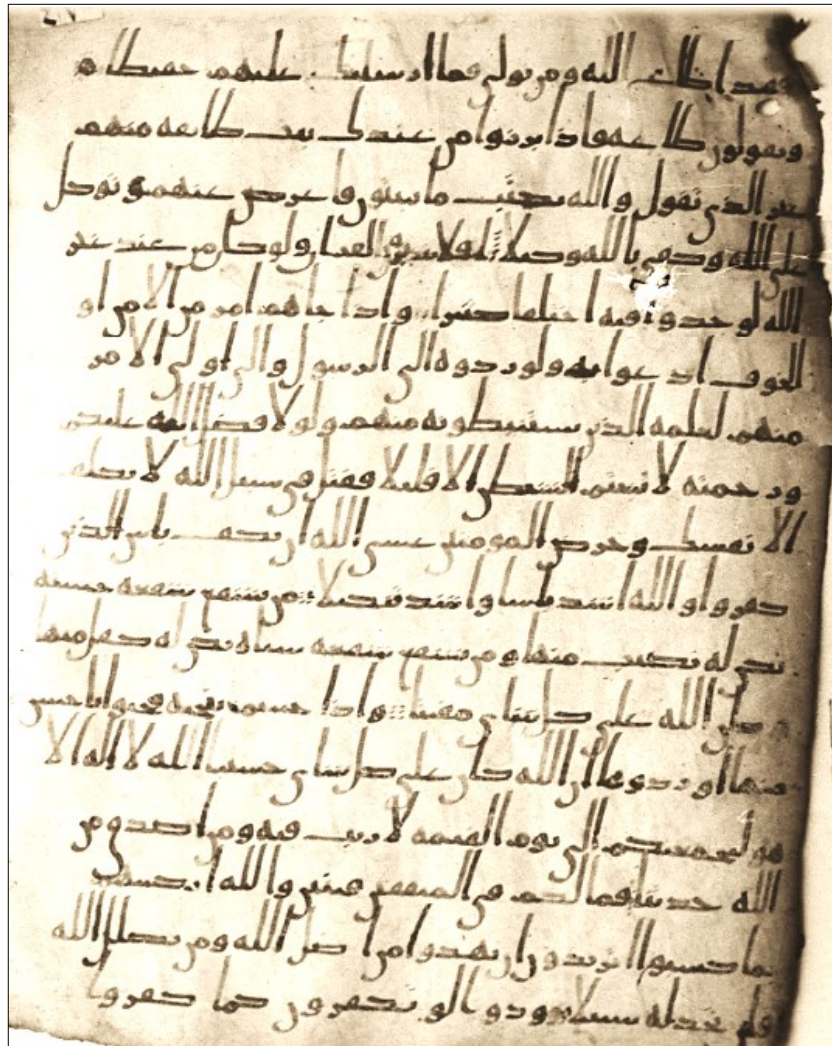 فقد اطاع الله ومن تولى فما ارسلنك عليهم حفيظا
ويقولون طاعه فاذا برزوا من عندك بيت طايفه منهم
غير الذي تقول والله يكتب ما يبيتون فاعرض عنهم وتوكل
على الله وكفى بالله وكيلا افلا يتدبرون القران ولو كان من عند غير
الله لوجدوا فيه اختلفا كثيرا واذا جاهم امر من الامن او
الخوف اذعوا به ولو ردوه الى الرسول والى اولي الامر
منهم لعلمه الذين يستنبطونه منهم ولولا فضل الله عليكم
ورحمته لاتبعتم الشيطن الا قليلا فقتل في سبيل الله لا تكلف
الا نفسك وحرض المومنين عسى الله ان يكف باس الذين
كفروا والله اشد باسا واشد تنكيلا من يشفع شفعه حسنه
يكن له نصيب منها ومن يشفع شفعه سييه يكن له كفل منها
وكان الله على كل شاي مقيتا واذا حييتم بتحيه فحيوا باحسن
منها او ردوها ان الله كان على كل شاي حسيبا الله لا اله الا
هو ليجمعنكم الى يوم القيمه لا ريب فيه ومن اصدق من
الله حديثا فما لكم في المنفقين فيتين والله اركسهم
بما كسبوا اتريدون ان تهدوا من اضل الله ومن يضلل الله
فلن تجد له سبيلا ودوا لو تكفرون كما كفروا